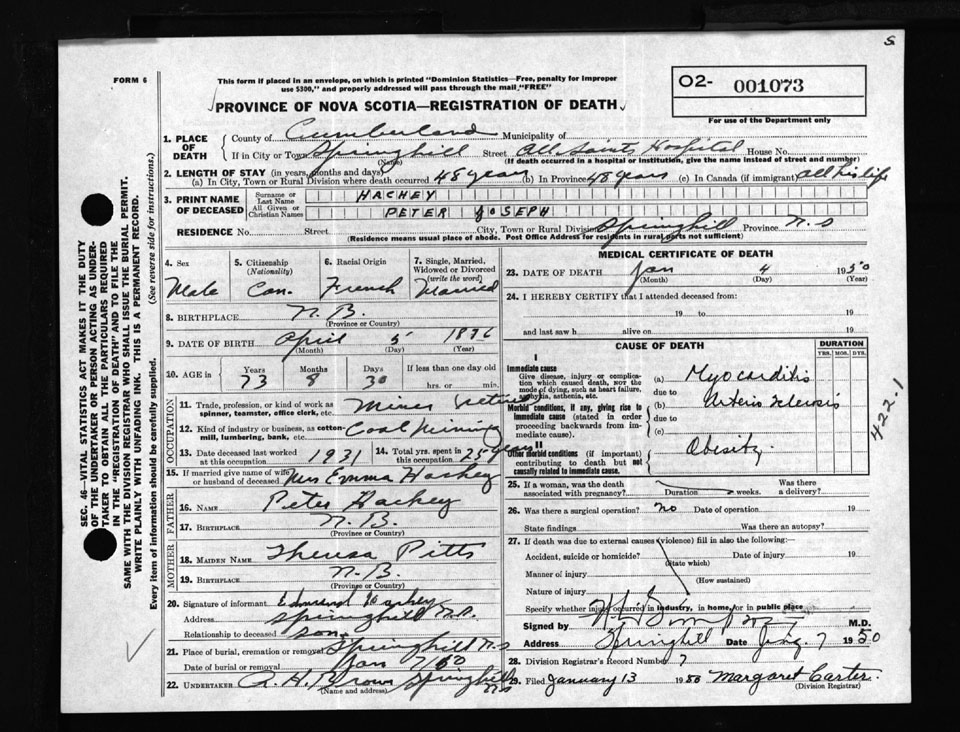 S
FORM 6
This form if placed in an envelope, on which is printed "Dominion Statistics—Free, penalty for improper
use $300," and properly addressed will pass through the mail "FREE"
PROVINCE OF NOVA SCOTIA—REGISTRATION OF DEATH
O2- 001073
For use of the Department only
SEC. 46—VITAL STATISTICS ACT MAKES IT THE DUTY
OF THE UNDERTAKER OR PERSON ACTING AS UNDER-
TAKER TO OBTAIN ALL THE PARTICULARS REQUIRED
IN THE "REGISTRATION OF DEATH" AND TO FILE THE
SAME WITH THE DIVISION REGISTRAR WHO SHALL ISSUE THE BURIAL PERMIT.
WRITE PLAINLY WITH UNFADING INK. THIS IS A PERMANENT RECORD.
Every item of information should be carefully supplied. (See reverse side for instructions.)
1. PLACE OF DEATH
County of Cumberland Municipality of
If in City or Town Springhill Street All Saints Hospital House No.
(Name) (If death occurred in a hospital or institution, give the name instead of street and number)
2. LENGTH OF STAY (in years, months and days)
(a) In City, Town or Rural Division where death occurred 48 years (b) In Province 48 years (c) In Canada (if immigrant) all his life
3. PRINT NAME OF DECEASED
Surname or Last Name HACHEY
All Given or Christian Names PETER JOSEPH
RESIDENCE No. Street City, Town or Rural Division Springhill Province N.S
(Residence means usual place of abode. Post Office Address for residents in rural parts not sufficient)
4. Sex
Male
5. Citizenship (Nationality)
Can.
6. Racial Origin
French
7. Single, Married, Widowed or Divorced (write the word)
Married
8. BIRTHPLACE N.B.
(Province or Country)
9. DATE OF BIRTH April 5 1876
(Month) (Day) (Year)
10. AGE in Years 73 Months 8 Days 30 If less than one day old
hrs. or min.
OCCUPATION
11. Trade, profession, or kind of work as spinner, teamster, office clerk, etc. Miner retired
12. Kind of industry or business, as cotton-mill, lumbering, bank, etc. Coal Mining
13. Date deceased last worked at this occupation 1931
14. Total yrs. spent in this occupation 25 years
15. If married give name of wife or husband of deceased Mrs Emma Hachey
FATHER
16. NAME Peter Hachey
17. BIRTHPLACE N.B.
(Province or Country)
MOTHER
18. MAIDEN NAME Theresa Pitts
19. BIRTHPLACE N.B.
(Province or Country)
20. Signature of informant Edmund Hachey
Address Springhill N.S.
Relationship to deceased son
21. Place of burial, cremation or removal Springhill N.S
Date of burial or removal Jan 7/50
22. UNDERTAKER A. H. Brown Springhill N.S
(Name and address)
MEDICAL CERTIFICATE OF DEATH
23. DATE OF DEATH Jan 4 1950
(Month) (Day) (Year)
24. I HEREBY CERTIFY that I attended deceased from:
19 to 19
and last saw h alive on 19
CAUSE OF DEATH
DURATION
YRS. MOS. DYS.
I
Immediate cause
Give disease, injury or complication which caused death, not the mode of dying, such as heart failure, asphyxia, asthenia, etc.
(a) Myocarditis
due to
Morbid conditions, if any, giving rise to immediate cause (stated in order proceeding backwards from immediate cause).
(b) Arterio sclerosis
due to
(c)
II
Other morbid conditions (if important) contributing to death but not causally related to immediate cause.
Obesity
422.1
25. If a woman, was the death associated with pregnancy? Duration weeks. Was there a delivery?
26. Was there a surgical operation? no Date of operation 19
State findings Was there an autopsy?
27. If death was due to external causes (violence) fill in also the following:—
Accident, suicide or homicide? Date of injury 19
(State which)
Manner of injury
(How sustained)
Nature of injury
Specify whether injury occurred in industry, in home, or in public place
Signed by M.D.
Address Springhill Date Jan 7 1950
28. Division Registrar's Record Number 7
29. Filed January 13 1950 Margaret Carter
(Division Registrar)